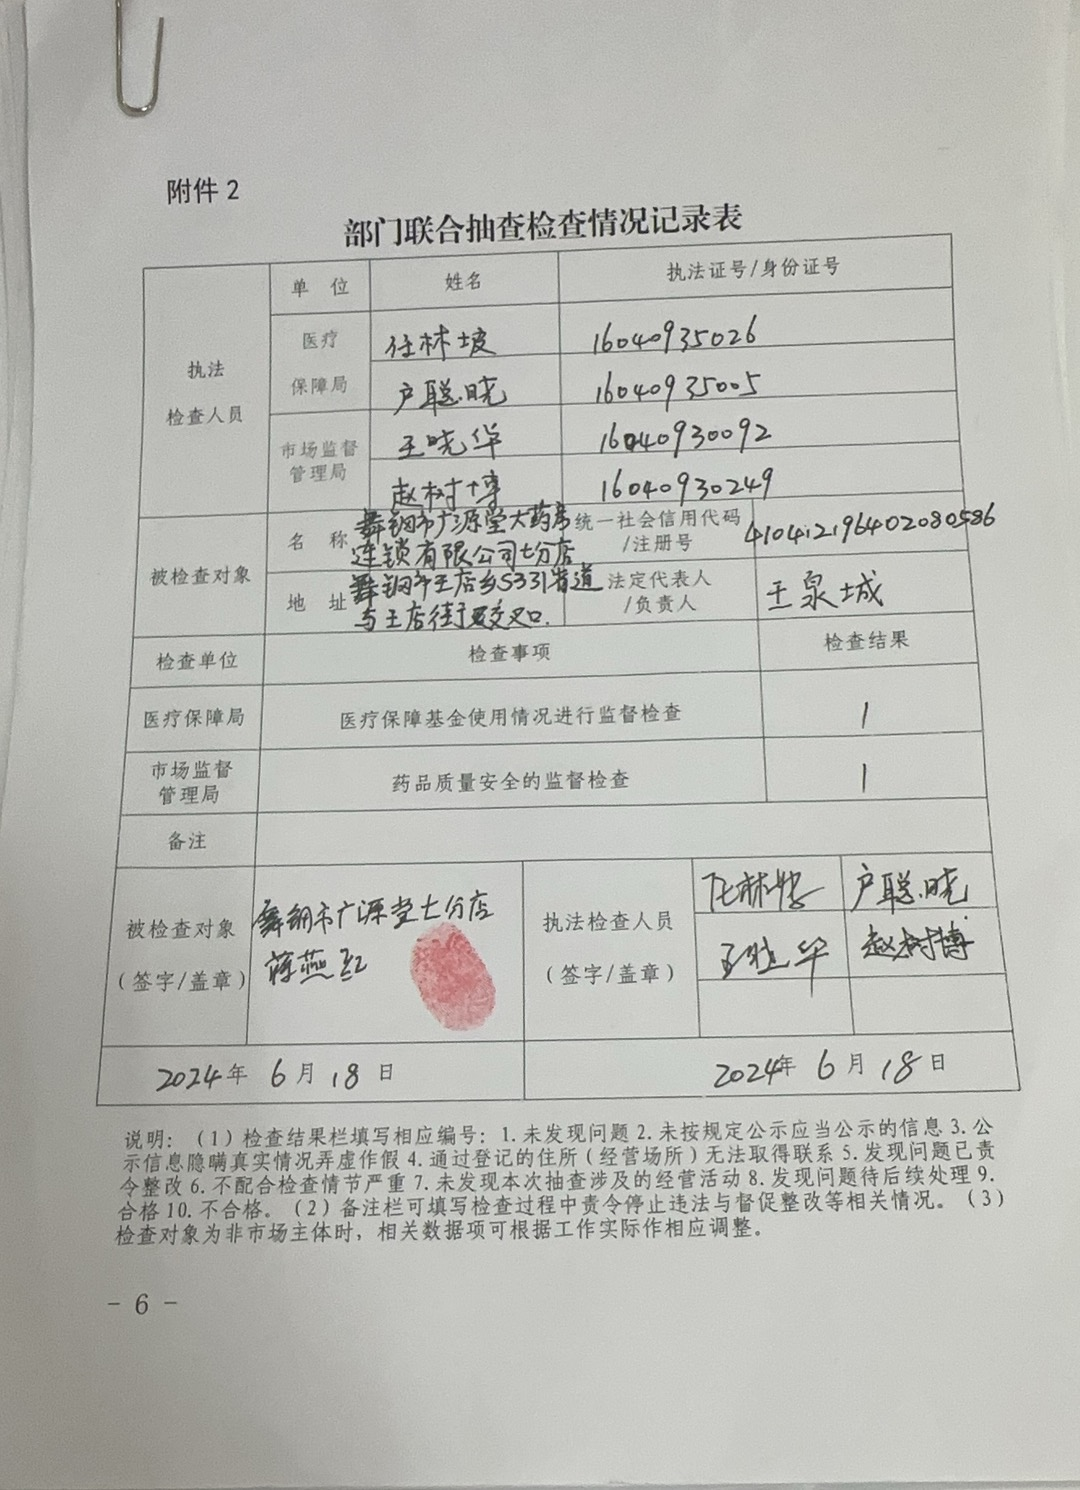 附件2
部门联合抽查检查情况记录表
单 位 姓名 执法证号/身份证号
执法
检查人员
医疗
保障局
任林坡 16040935026
户聪晓 16040935005
市场监督
管理局
王晓华 16040930092
赵树博 16040930249
被检查对象
名 称
舞钢市广源堂大药房
连锁有限公司七分店
统一社会信用代码
/注册号
地 址
舞钢市王店乡S331省道
与王店街交叉口.
法定代表人
/负责人
王泉城
检查单位 检查事项 检查结果
医疗保障局 医疗保障基金使用情况进行监督检查 1
市场监督
管理局
药品质量安全的监督检查 1
备注
被检查对象
(签字/盖章)
舞钢市广源堂七分店
蒋燕红
执法检查人员
(签字/盖章)
任林坡 户聪晓
王晓华 赵树博
2024年 6月 18日 2024年 6月 18日
说明：（1）检查结果栏填写相应编号：1. 未发现问题 2. 未按规定公示应当公示的信息 3. 公
示信息隐瞒真实情况弄虚作假 4. 通过登记的住所（经营场所）无法取得联系 5. 发现问题已责
令整改 6. 不配合检查情节严重 7. 未发现本次抽查涉及的经营活动 8. 发现问题待后续处理 9.
合格 10. 不合格。（2）备注栏可填写检查过程中责令停止违法与督促整改等相关情况。（3）
检查对象为非市场主体时，相关数据项可根据工作实际作相应调整。
- 6 -